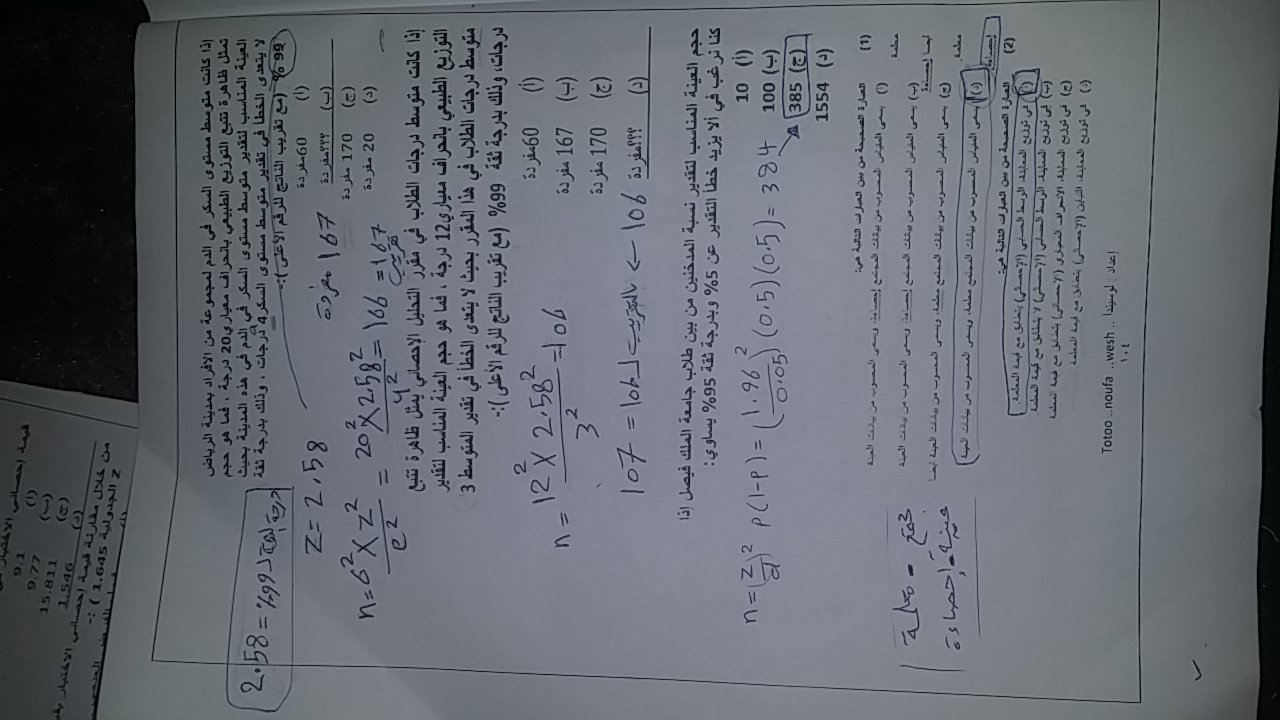 إذا كانت متوسط مستوى السكر فى الدم لمجموعة من الأفراد بمدينة الرياض
تمثل ظاهرة تتبع التوزيع الطبيعي بانحراف معياري20 درجة ، فما هو حجم
العينة المناسب لتقدير متوسط مستوى السكر فى الدم في هذه المدينة بحيث
لا يتعدى الخطا في تقدير متوسط مستوى السكر4 درجات ، وذلك بدرجة ثقة
99% (مع تقريب الناتج للرقم الأعلى):-
درجة الثقة لـ 99% = 2.58
(أ) 60مفردة
(ب) ؟؟؟؟مفردة
(ج) 170 مفردة
(د) 20 مفردة
167 مفردة
Z = 2.58
n = б² × Z² / e² = 20² × 2.58² / 4² = 166 = 167
تقريب
إذا كانت متوسط درجات الطلاب في مقرر التحليل الإحصائي يمثل ظاهرة تتبع
التوزيع الطبيعي بانحراف معياري12 درجة ، فما هو حجم العينة المناسب لتقدير
متوسط درجات الطلاب في هذا المقرر بحيث لا يتعدى الخطا في تقدير المتوسط 3
درجات، وذلك بدرجة ثقة 99% (مع تقريب الناتج للرقم الأعلى):-
(أ) 60مفردة
(ب) 167 مفردة
(ج) 170 مفردة
(د) ؟؟؟؟مفردة
n = 12² × 2.58² / 3² = 106
106 → بالتقريب لـ 106 = 107
حجم العينة المناسب لتقدير نسبة المدخنين من بين طلاب جامعة الملك فيصل إذا
كنا نرغب في ألا يزيد خطأ التقدير عن 5% وبدرجة ثقة 95% يساوي:
(أ) 10
(ب) 100
(ج) 385
(د) 1554
n = (Z/d)² P(1-P) = (1.96/0.05)² (0.5)(0.5) = 384
(1) العبارة الصحيحة من بين العبارات التالية هي:
(أ) يسمى المقياس المحسوب من بيانات المجتمع إحصاءة، ويسمى المحسوب من بيانات العينة
معلمة
(ب) يسمى المقياس المحسوب من بيانات المجتمع إحصاءة، ويسمى المحسوب من بيانات العينة أيضا
إحصاءة
(ج) يسمى المقياس المحسوب من بيانات المجتمع معلمة، ويسمى المحسوب من بيانات العينة أيضا
معلمة
(د) يسمى المقياس المحسوب من بيانات المجتمع معلمة، ويسمى المحسوب من بيانات العينة
إحصاءة
مجتمع - معلمة
عينة - إحصاءة
(2) العبارة الصحيحة من بين العبارات التالية هي:
(أ) في توزيع المعاينة الوسط الحسابي (الإحصائي) يتطابق مع قيمة المعلمة
(ب) في توزيع المعاينة الوسط الحسابي (الإحصائي) لا يتطابق مع قيمة المعلمة
(ج) في توزيع المعاينة الانحراف المعياري (الإحصائي) يتطابق مع قيمة المعلمة
(د) في توزيع المعاينة التباين (الإحصائي) يتطابق مع قيمة المعلمة
Totoo ..noufa ..wesh .. اعداد : لوسيندا
١٠٤
قيمة إحصائي الاختبار
(أ) 9.1
(ب) 9.77
(ج) 15.811
(د) 1.546
من خلال مقارنة قيمة إحصائي الاختبار بقيمة
Z الجدولية 1.645 ) :-